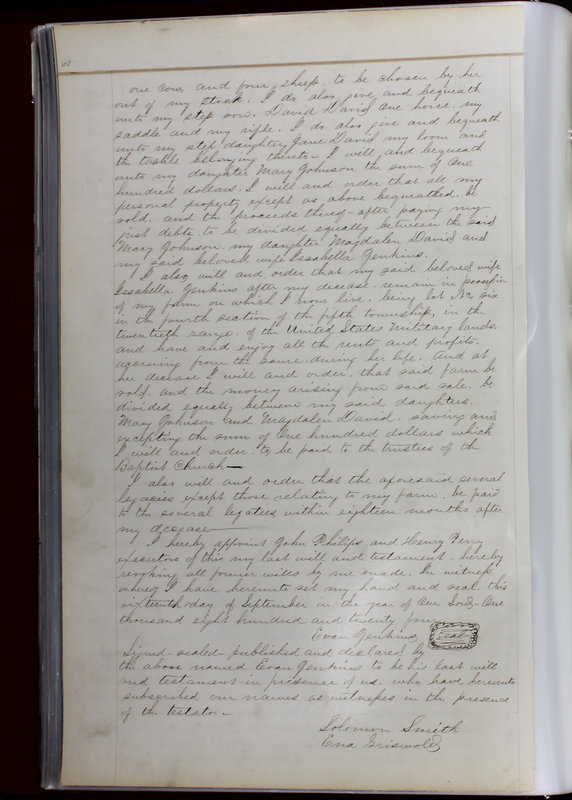 60
one cow and four sheep. to be chosen by her
out of my stock. I do also give and bequeath
unto my step son, David David one horse. my
saddle and my rifle. I do also give and bequeath
unto my step daughter Jane David my loom and
the tackle belonging thereto — I will and bequeath
unto my daughter Mary Johnson the sum of One
hundred dollars. I will and order that all my
personal property except as above bequeathed. be
sold. and the proceeds thereof - after paying my
just debts. to be divided equally between the said
Mary Johnson. my daughter Magdalen David and
my said beloved wife Issabella Jenkins.
I also will and order that my said beloved wife
Issabella Jenkins after my decease - remain in possession
of my farm on which I now live. being lot No. six
in the fourth section of the fifth township, in the
twentieth range. of the United States Military lands.
and have and enjoy all the rents and profits.
accruing from the same. during her life. and at
her decease I will and order. that said farm be
sold. and the money arising from said sale. be
divided equally between my said daughters.
Mary Johnson and Magdalen David. saving and
excepting the sum of One hundred dollars which
I will and order. to be paid to the trustees of the
Baptist Church —
I also will and order that the aforesaid several
legacies except those relating to my farm. be paid
to the several legatees within eighteen months after
my decease —
I hereby appoint John Philips and Henry Perry
executors of this my last will and testament - hereby
revoking all former wills by me made. In witness
whereof I have hereunto set my hand and seal. this
sixteenth day of September in the year of Our Lord - One
thousand eight hundred and twenty four
Evan Jenkins Seal
Signed - sealed - published and declared by
the above named Evan Jenkins to be his last will
and testament - in presence of us. who have hereunto
subscribed our names as witnesses in the presence
of the testator —
Solomon Smith
Ezra Griswold